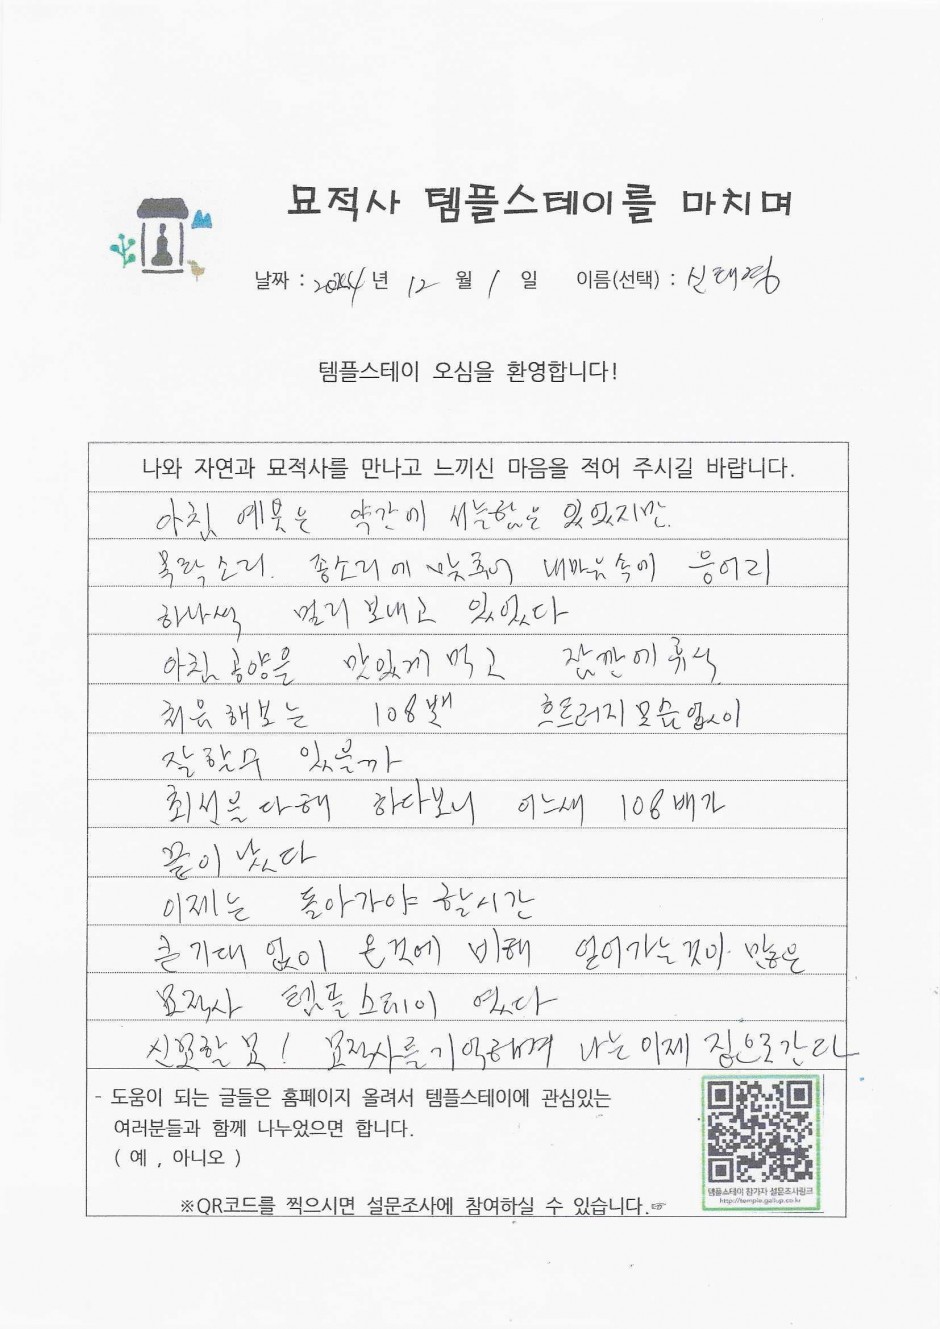 묘적사 템플스테이를 마치며
날짜 : 2024 년 12 월 1 일 이름(선택) : 신태평
템플스테이 오심을 환영합니다!
나와 자연과 묘적사를 만나고 느끼신 마음을 적어 주시길 바랍니다.
아침 예붓은 약간에 서늘함은 있었지만.
목탁소리. 종소리에 맞추어 내마음속에 응어리
하나씩 멀리 보내고 있었다
아침공양은 맛있게 먹고 잠깐에 휴식
처음해보는 108배 흐트러지모습없이
잘할수 있을까
최선을 다해 하다보니 어느새 108배가
끝이 났다
이제는 돌아가야 할시간
큰기대 없이 온것에 비해 얻어가는것이 많은
묘적사 템플스테이 였다
신묘할 묘! 묘적사를 기억하며 나는 이제 집으로간다
- 도움이 되는 글들은 홈페이지 올려서 템플스테이에 관심있는
여러분들과 함께 나누었으면 합니다.
( 예 , 아니오 )
템플스테이 참가자 설문조사링크
http://temple.gallup.co.kr
※QR코드를 찍으시면 설문조사에 참여하실 수 있습니다.☞